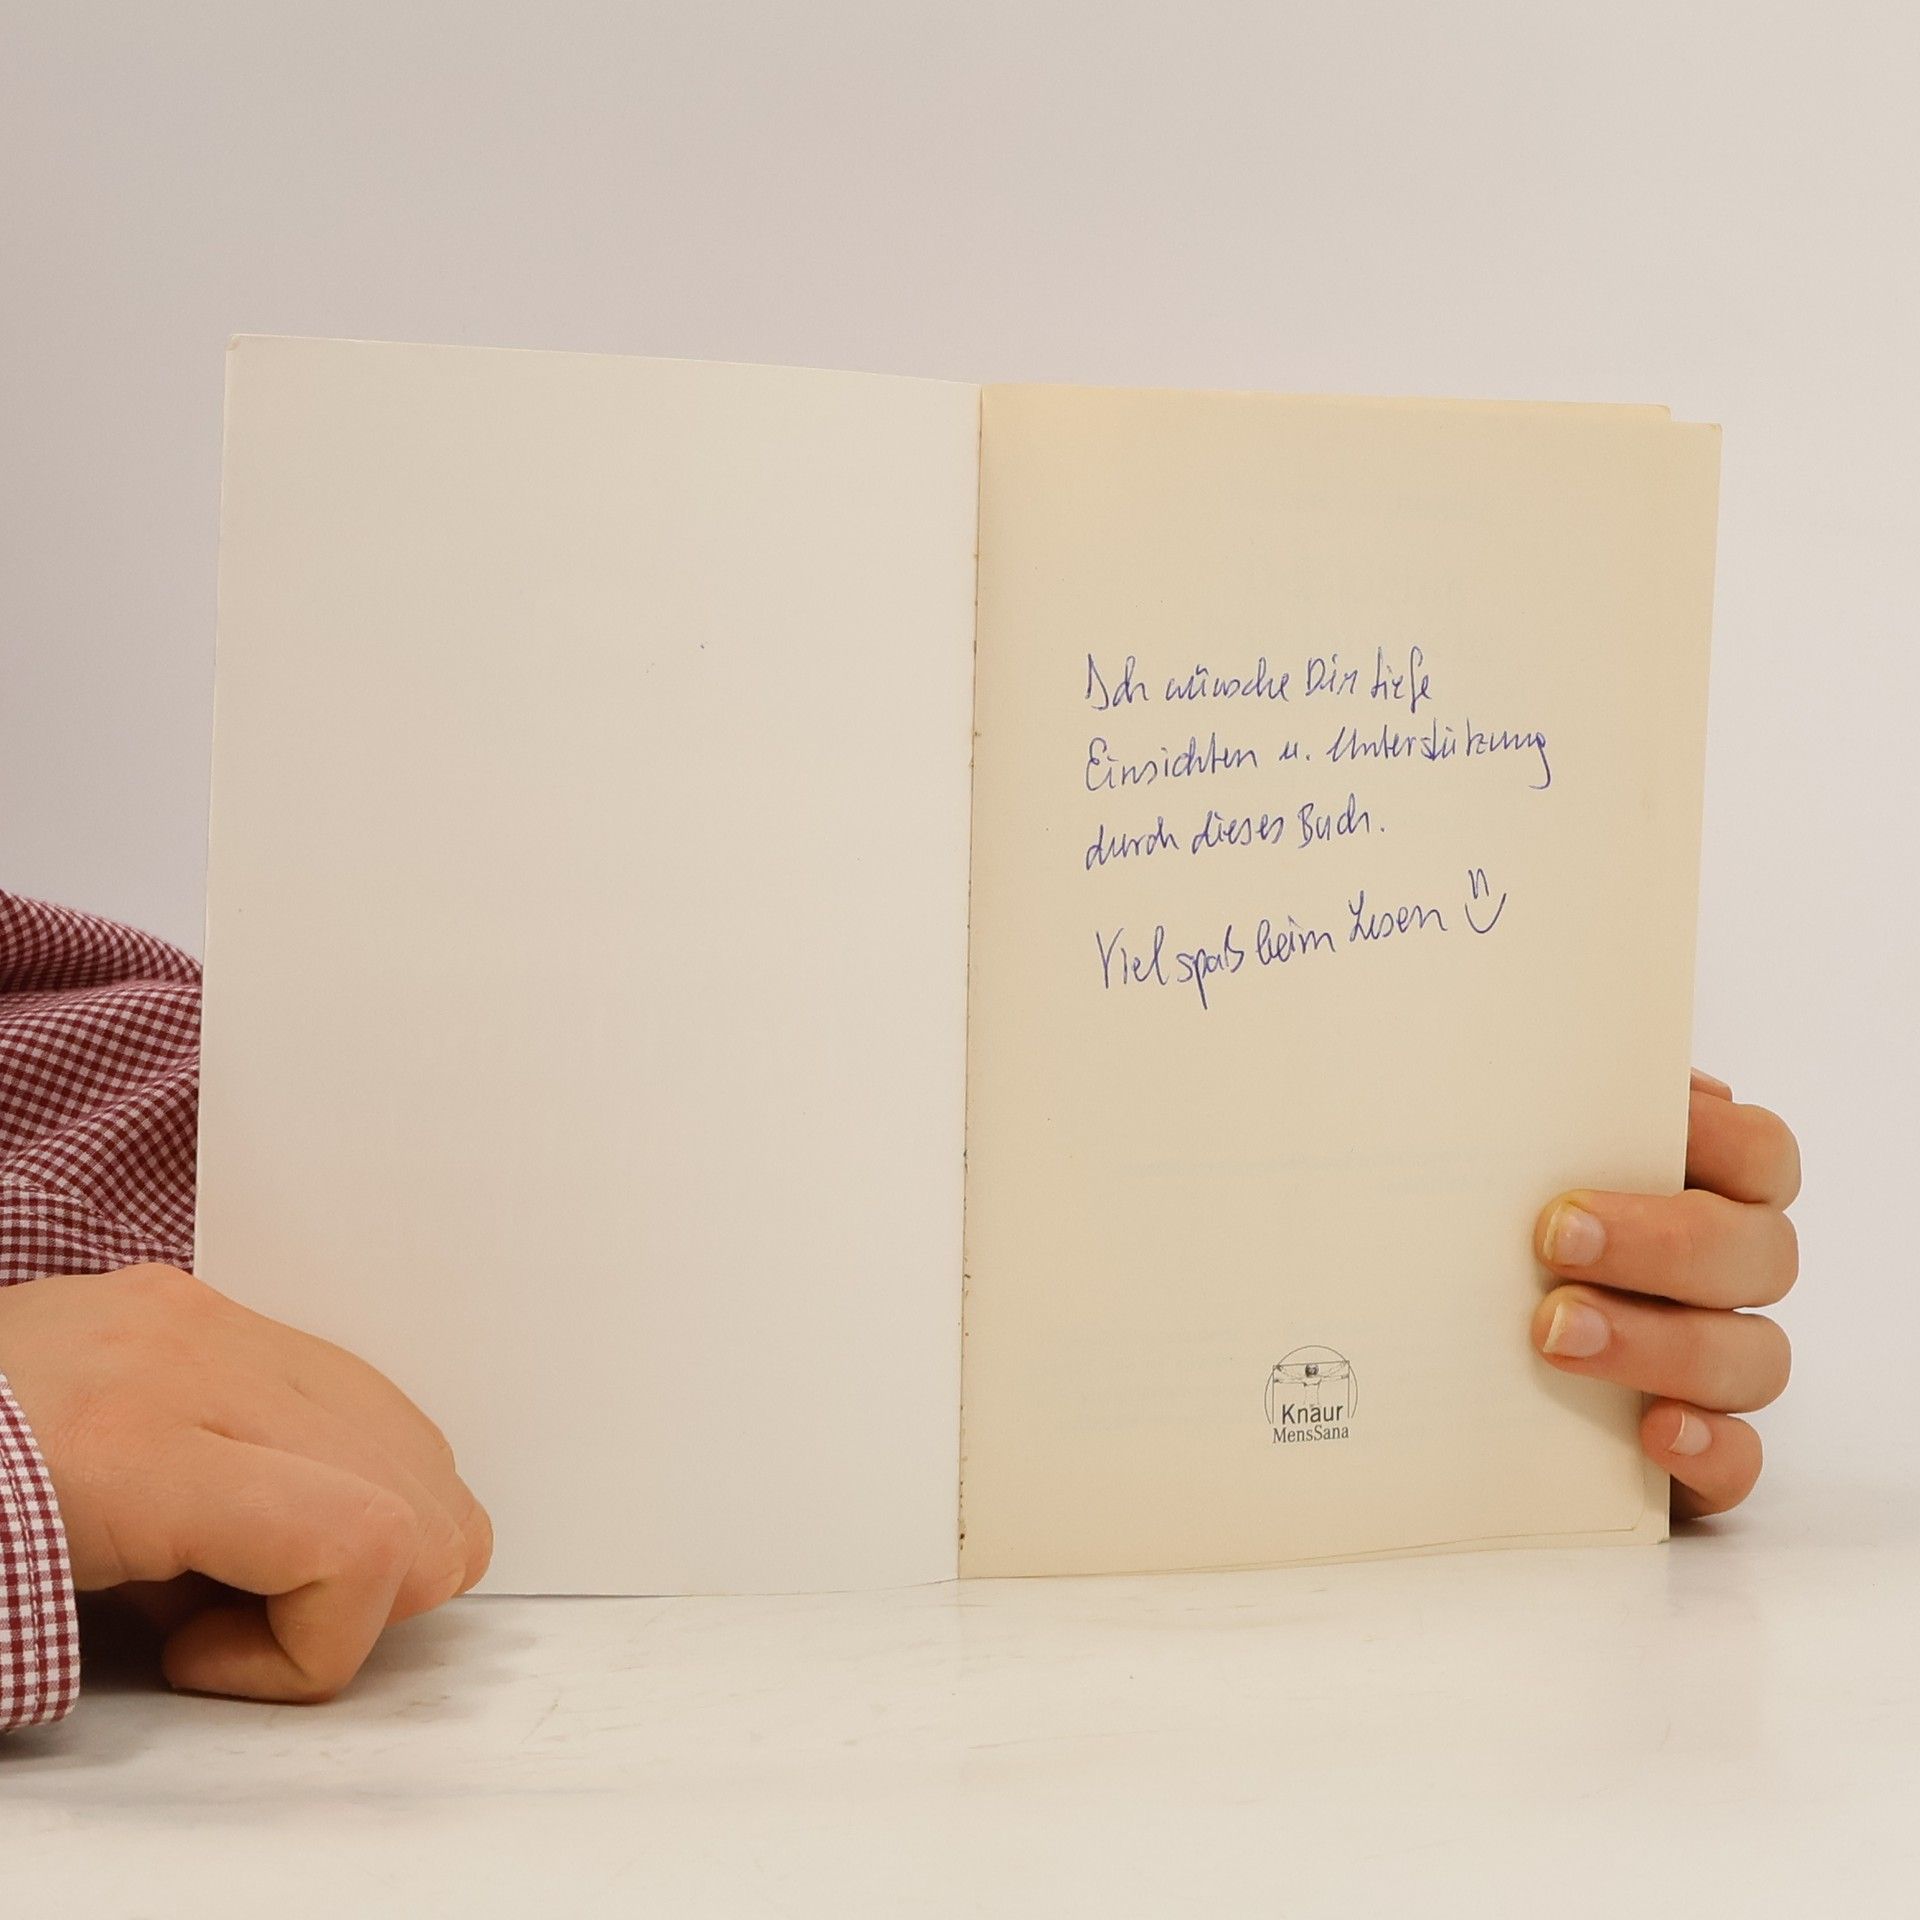 Ich wünsche Dir tiefe
Einsichten u. Unterstützung
durch dieses Buch.
Viel spaß beim Lesen
Knaur
MensSana